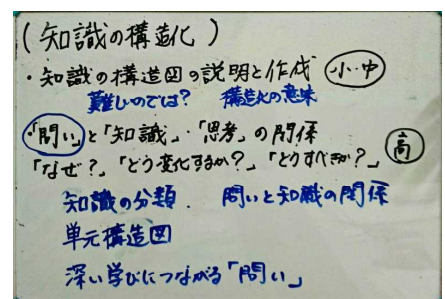 (知識の構造化)
・知識の構造図の説明と作成 小・中
難しいのでは? 構造化の意味
「問い」と「知識」・「思考」の関係
「なぜ?」「どう変化するか?」「どうすべきか?」 高
知識の分類 問いと知識の関係
単元構造図
深い学びにつながる「問い」